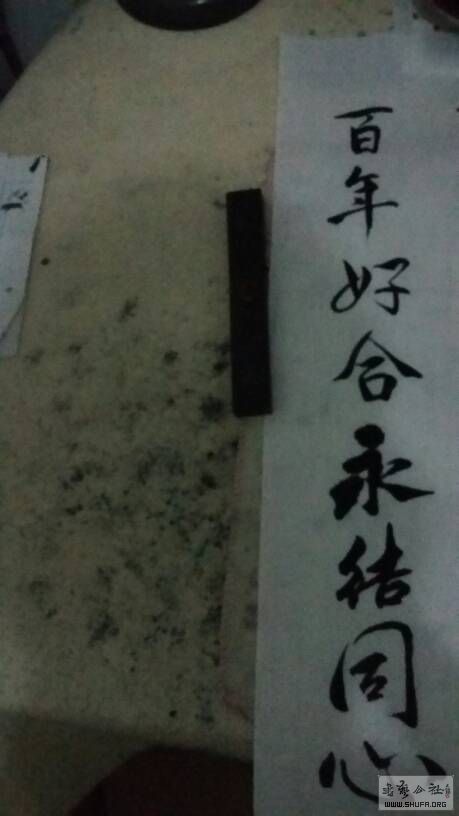 百年好合永结同心
书艺公社
WWW.SHUFA.ORG